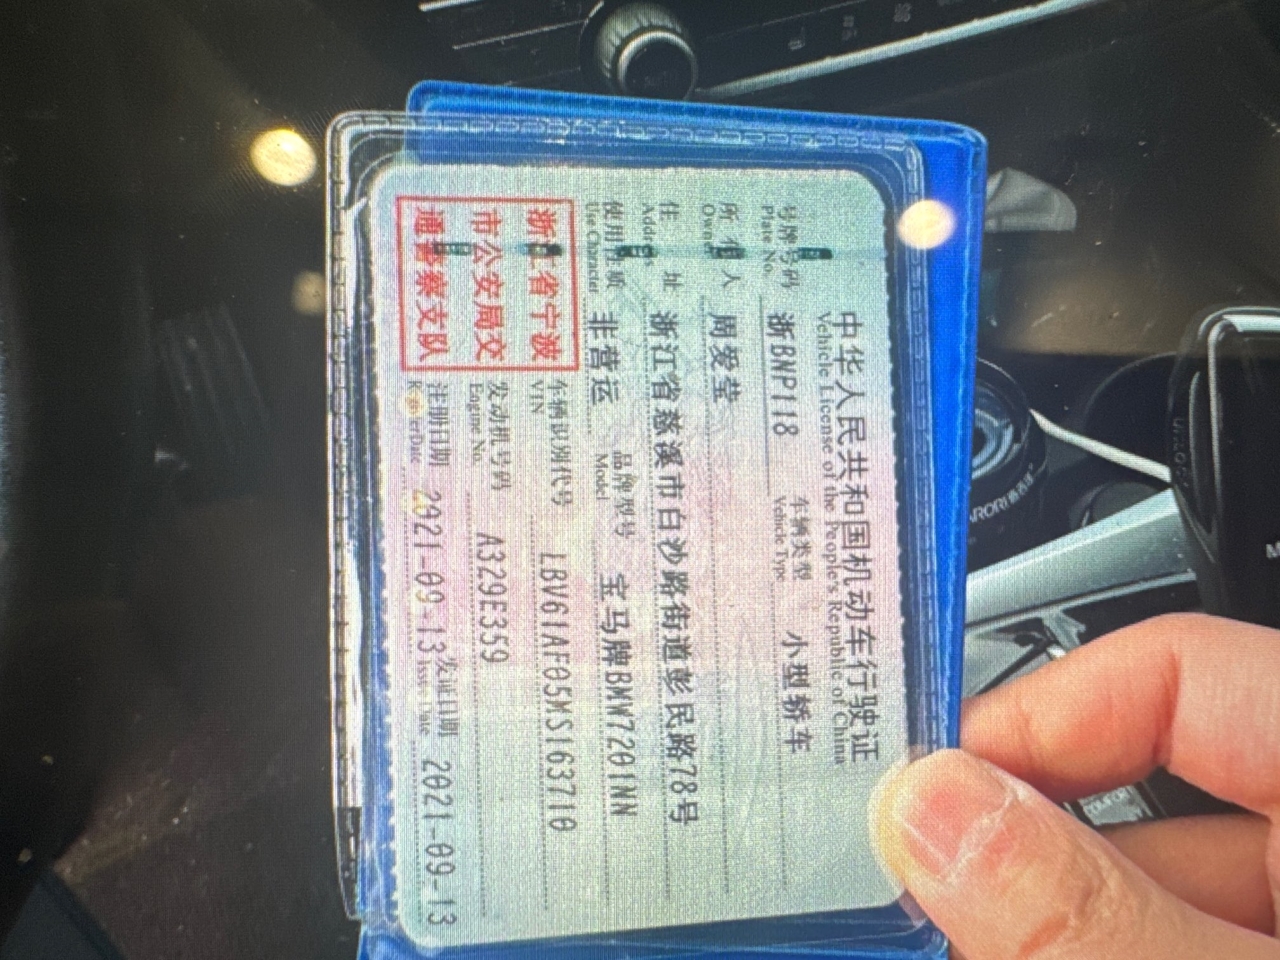 中华人民共和国机动车行驶证
Vehicle License of the People's Republic of China
号牌号码 浙BNP118 车辆类型 小型轿车
Plate No. Vehicle Type
所有人 周爱莹
Owner
住 址 浙江省慈溪市白沙路街道彭民路78号
Address
使用性质 非营运 品牌型号 宝马牌BMW7201NN
Use Character Model
浙江省宁波
市公安局交
通警察支队
车辆识别代号 LBV61AF05MS163710
VIN
发动机号码 A329E359
Engine No.
注册日期 2021-09-13 发证日期 2021-09-13
Register Date Issue Date